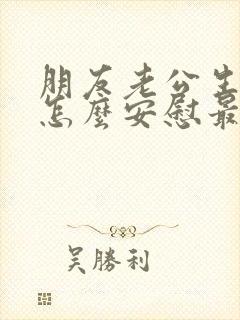 朋友老公生
怎麼安慰最
吴勝利